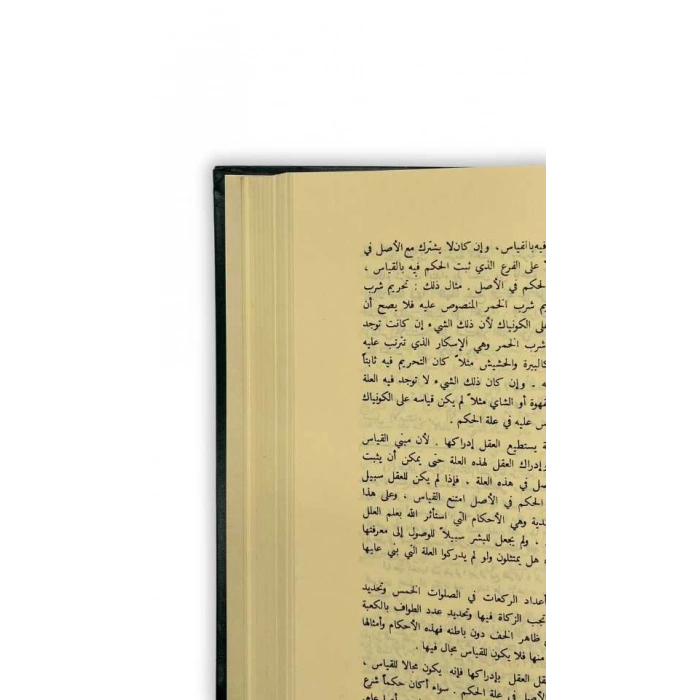 فيه بالقياس، وإن كان لا يشترك مع الأصل في
على الفرع الذي ثبت الحكم فيه بالقياس ،
الحكم في الأصل . مثال ذلك : تحريم شرب
شرب الخمر المنصوص عليه فلا يصح أن
على الكونياك لأن ذلك الشيء إن كانت توجد
شرب الخمر وهي الإسكار الذي تترتب عليه
كالبيرة والحشيش مثلاً كان التحريم فيه ثابتاً
. وإن كان ذلك الشيء لا توجد فيه العلة
قهوة أو الشاي مثلاً لم يكن قياسه على الكونياك
عليه في علة الحكم .
يستطيع العقل إدراكها . لأن مبنى القياس
إدراك العقل لهذه العلة حتى يمكن أن يثبت
في هذه العلة . فإذا لم يكن للعقل سبيل
الحكم في الأصل امتنع القياس ، وعلى هذا
وهي الأحكام التي استأثر الله بعلم العلل
، ولم يجعل للبشر سبيلاً للوصول إلى معرفتها
هل يمتثلون ولو لم يدركوا العلة التي بني عليها
أعداد الركعات في الصلوات الخمس وتحديد
تجب الزكاة فيها وتحديد عدد الطواف بالكعبة
ظاهر الخف دون باطنه فهذه الأحكام وأمثالها
منها فلا يكون للقياس مجال فيها .
العقل بإدراكها فإنه يكون مجالا للقياس ،
في علة الحكم . سواء أكان حكماً شرع